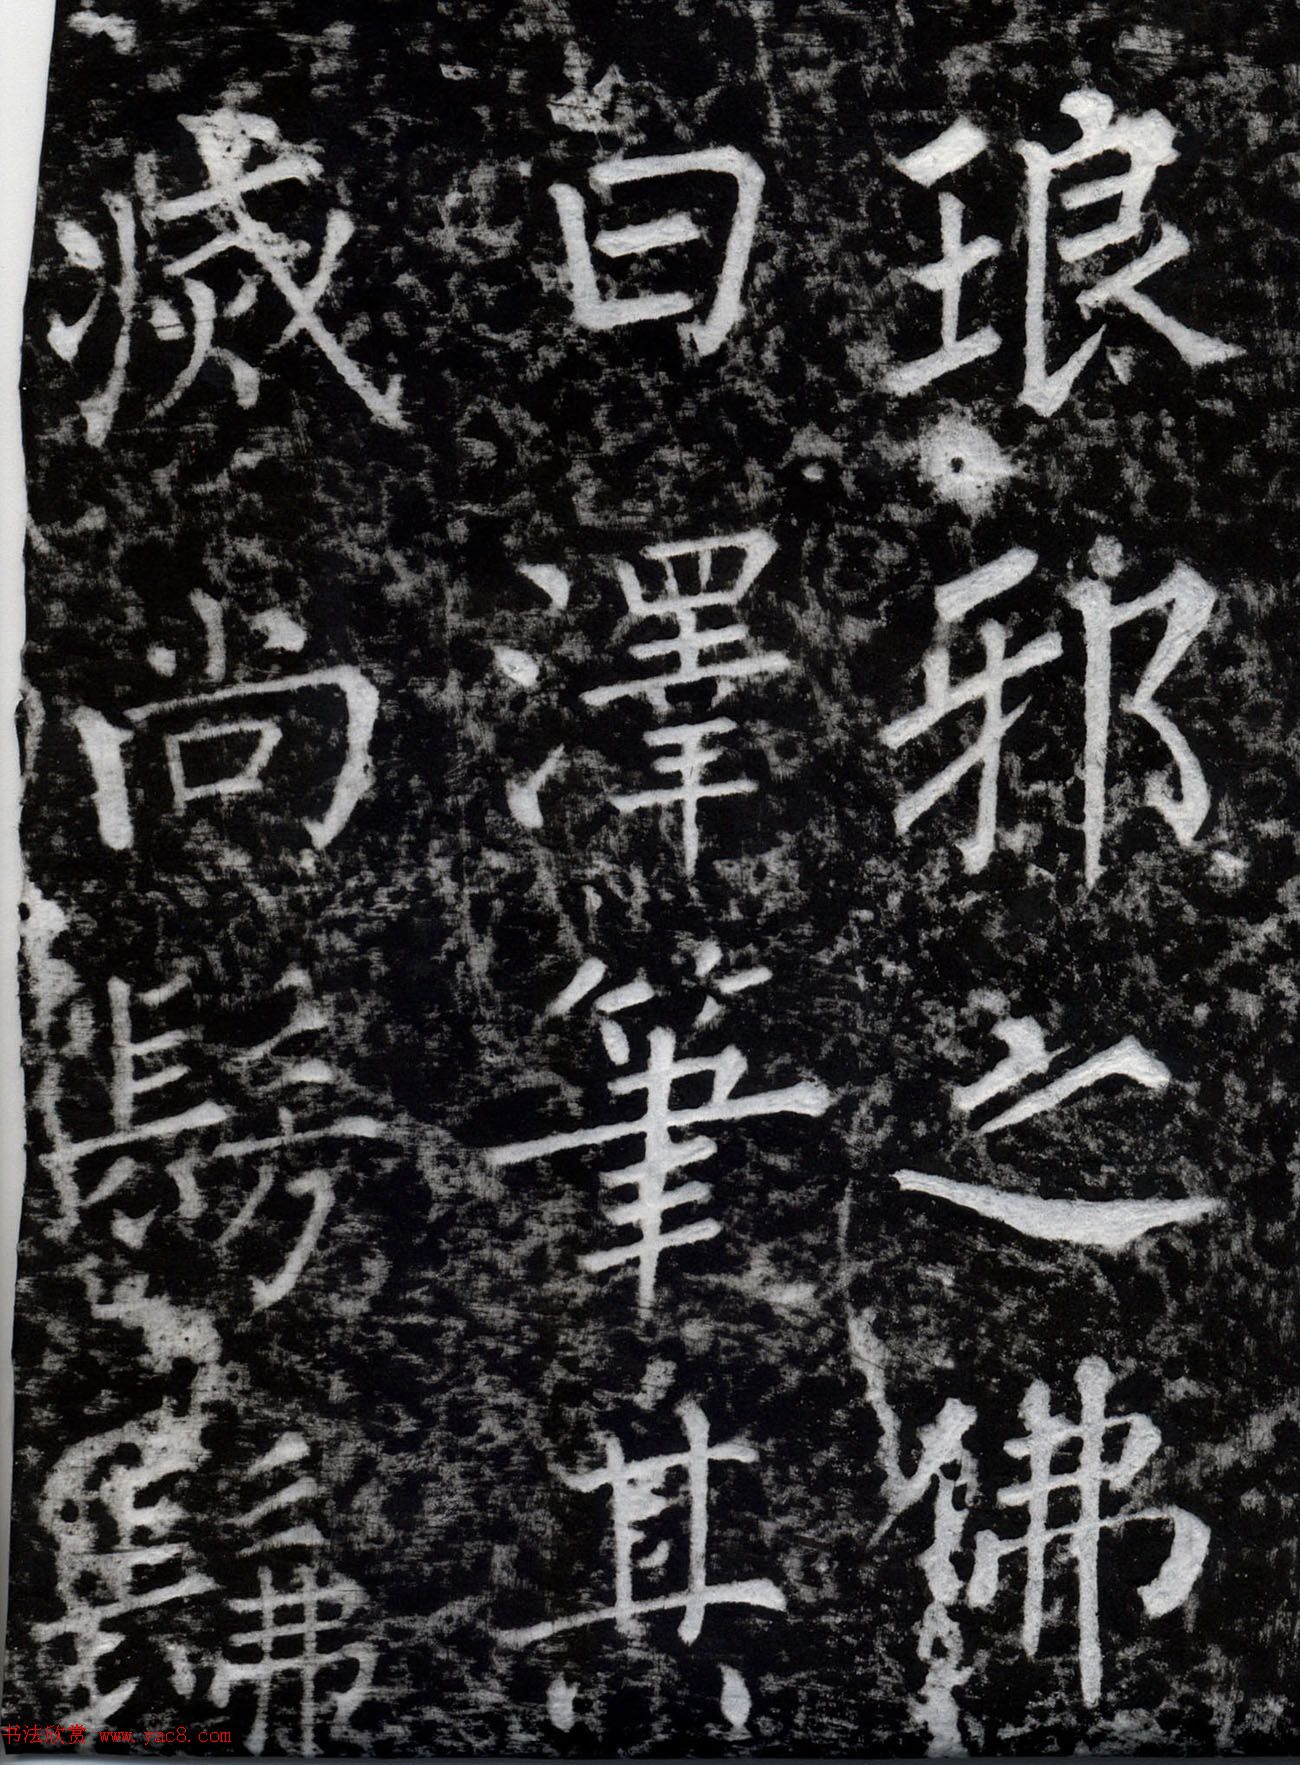 琅邪之佛
日澤筆其
滅尚髣髴
书法欣赏 www.yac8.com